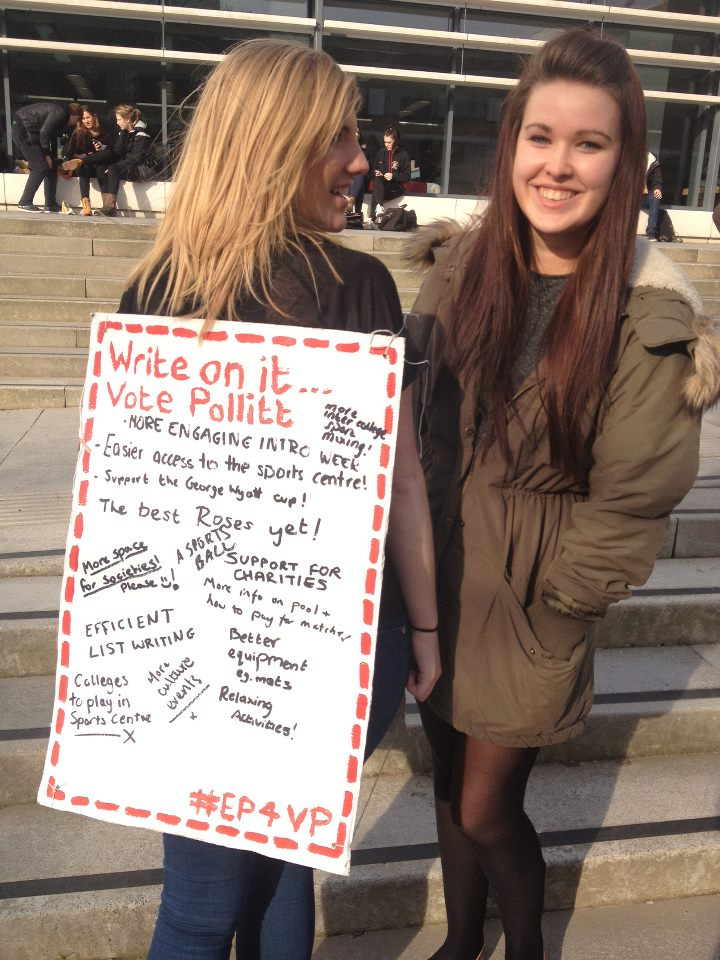 Write on it...
Vote Pollitt
more
inter college
sport
mixing!
· MORE ENGAGING INTRO WEEK
- Easier access to the sports centre!
· Support the George Wyatt cup!
The best Roses yet!
A SPORTS
BALL
More space
for societies!
Please :)!
SUPPORT FOR
CHARITIES
More info on pool +
how to pay for matches
EFFICIENT
LIST WRITING
Better
equipment
eg. mats
Colleges
to play in
Sports Centre
x
More
culture
events
x
Relaxing
Activities!
#EP4VP